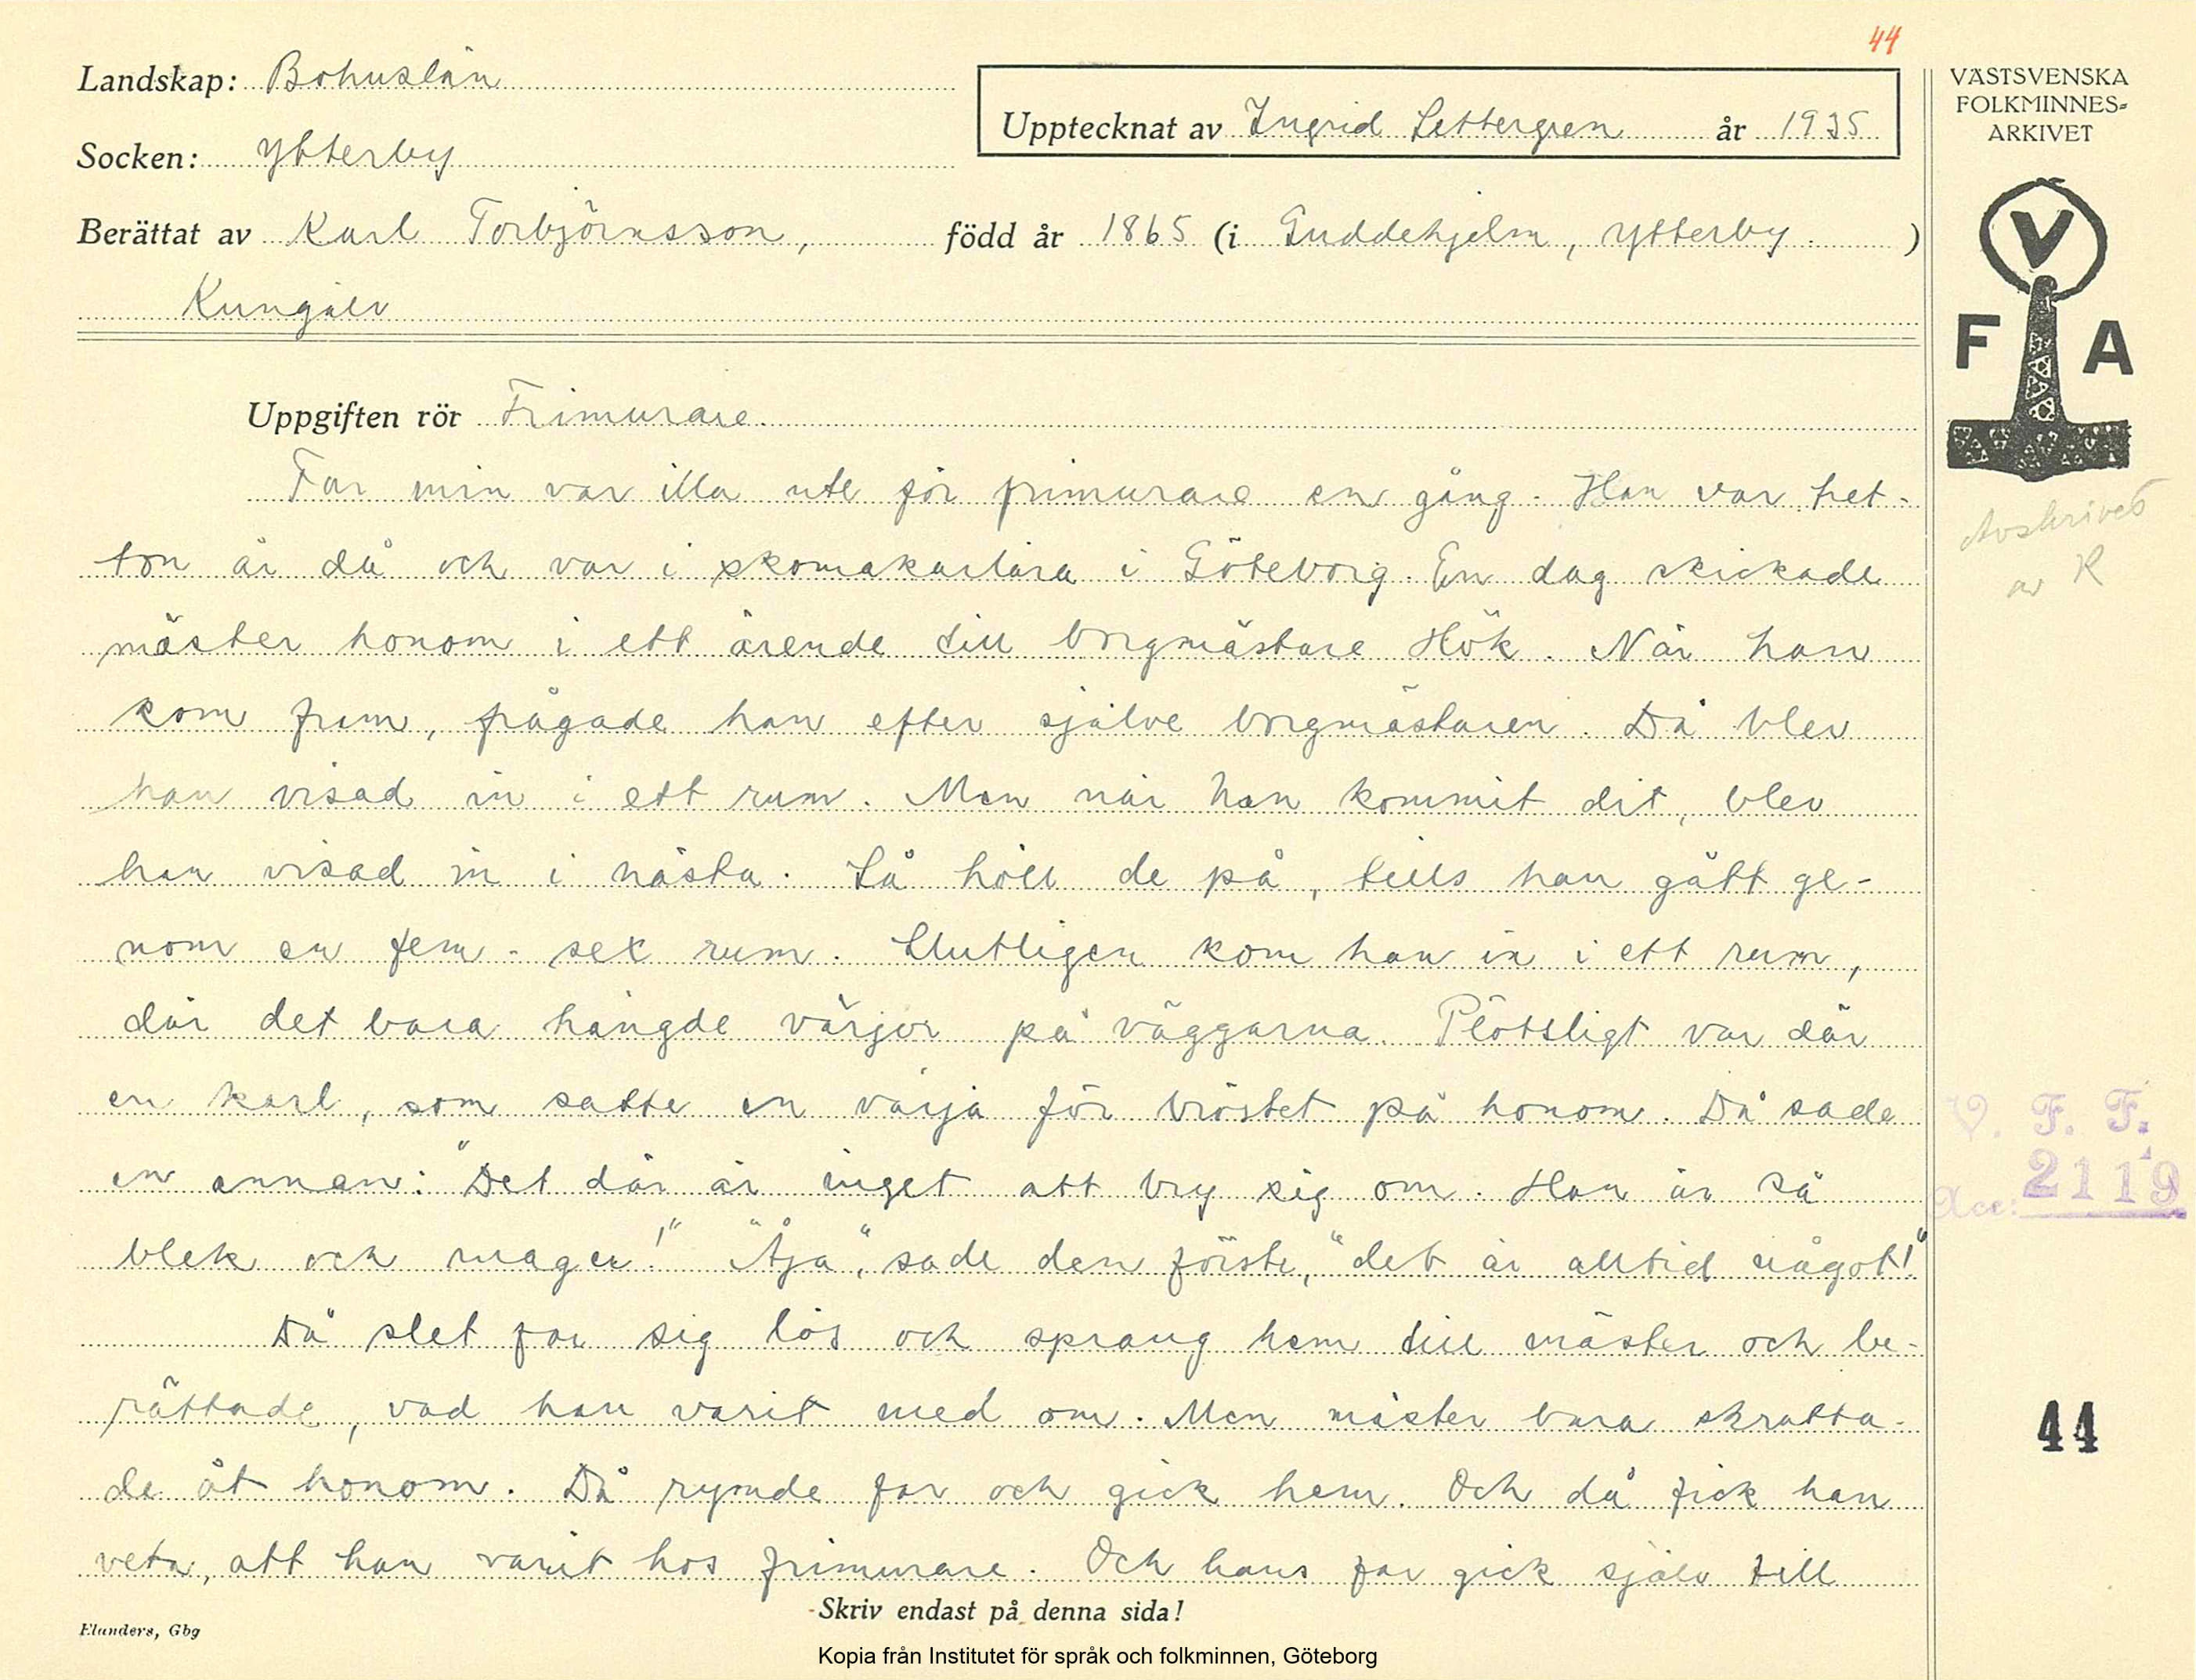 44
Landskap: Bohuslän
Upptecknat av Ingrid Settergren år 1935
Socken: Ytterby
Berättat av Karl Torbjörnsson, född år 1865 (i Guddehjelm, Ytterby. )
Kungälv
VÄSTSVENSKA
FOLKMINNES-
ARKIVET
V
F A
Uppgiften rör Frimurare.
Far min var illa ute för frimurare en gång. Han var tret-
ton år då och var i skomakarlära i Göteborg. En dag skickade
mäster honom i ett ärende till borgmästare Hök. När han
kom fram, frågade han efter själve borgmästaren. Då blev
han visad in i ett rum. Men när han kommit dit, blev
han visad in i nästa. Så höll de på, tills han gått ge-
nom en fem-sex rum. Slutligen kom han in i ett rum,
där det bara hängde värjor på väggarna. Plötsligt var där
en karl, som satte en värja för bröstet på honom. Då sade
en annan: "Det där är inget att bry sig om. Han är så
blek och mager!" "Åja", sade den förste, "det är alltid något!"
Då slet far sig lös och sprang hem till mäster och be-
rättade, vad han varit med om. Men mäster bara skratta-
de åt honom. Då rymde far och gick hem. Och då fick han
veta, att han varit hos frimurare. Och hans far gick själv till
Avskrives
av K
V. F. F.
Acc: 2119
44
Skriv endast på denna sida!
Elanders, Gbg
Kopia från Institutet för språk och folkminnen, Göteborg